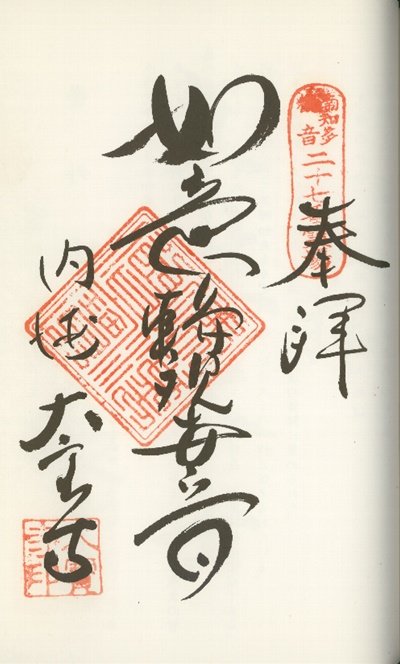 南知多
音
二十七
奉拝
如意輪観世音
内海 大宝寺